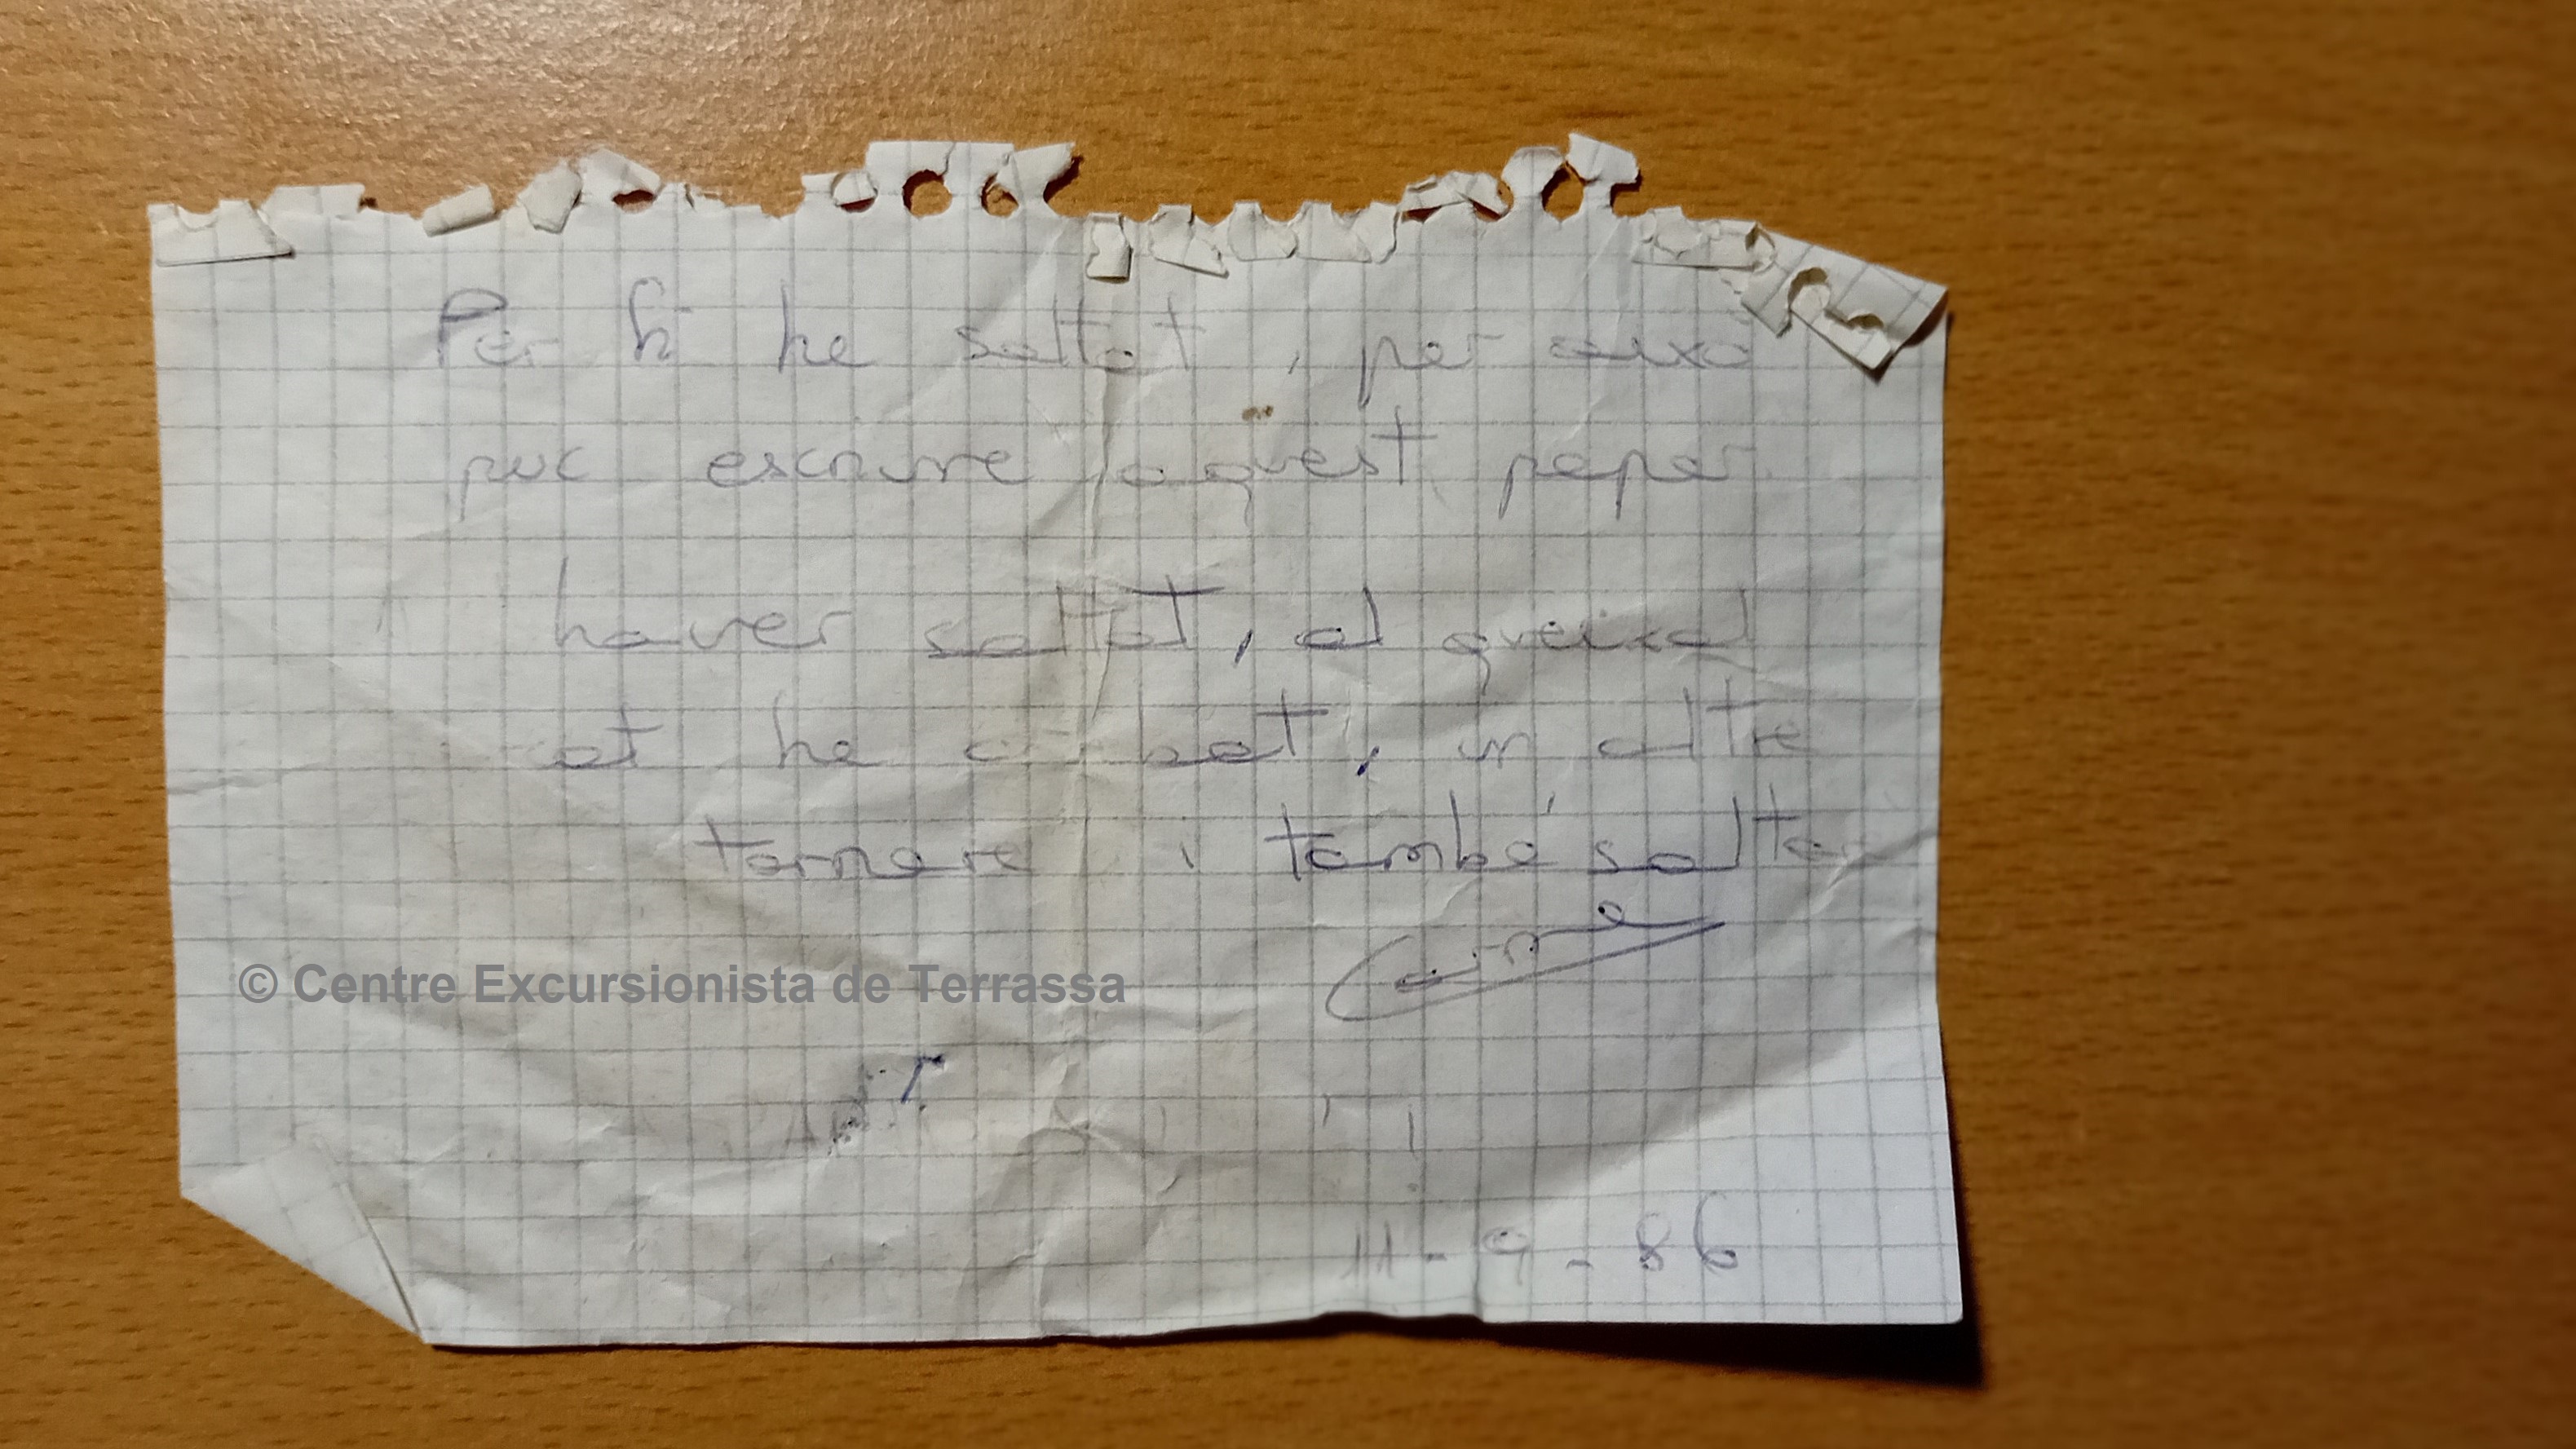 Per fi he saltat, per aixó
puc escriure aquest paper
haver saltat, al queixal
at he a bat, un altre
tornare i també saltar
© Centre Excursionista de Terrassa
11-9-86